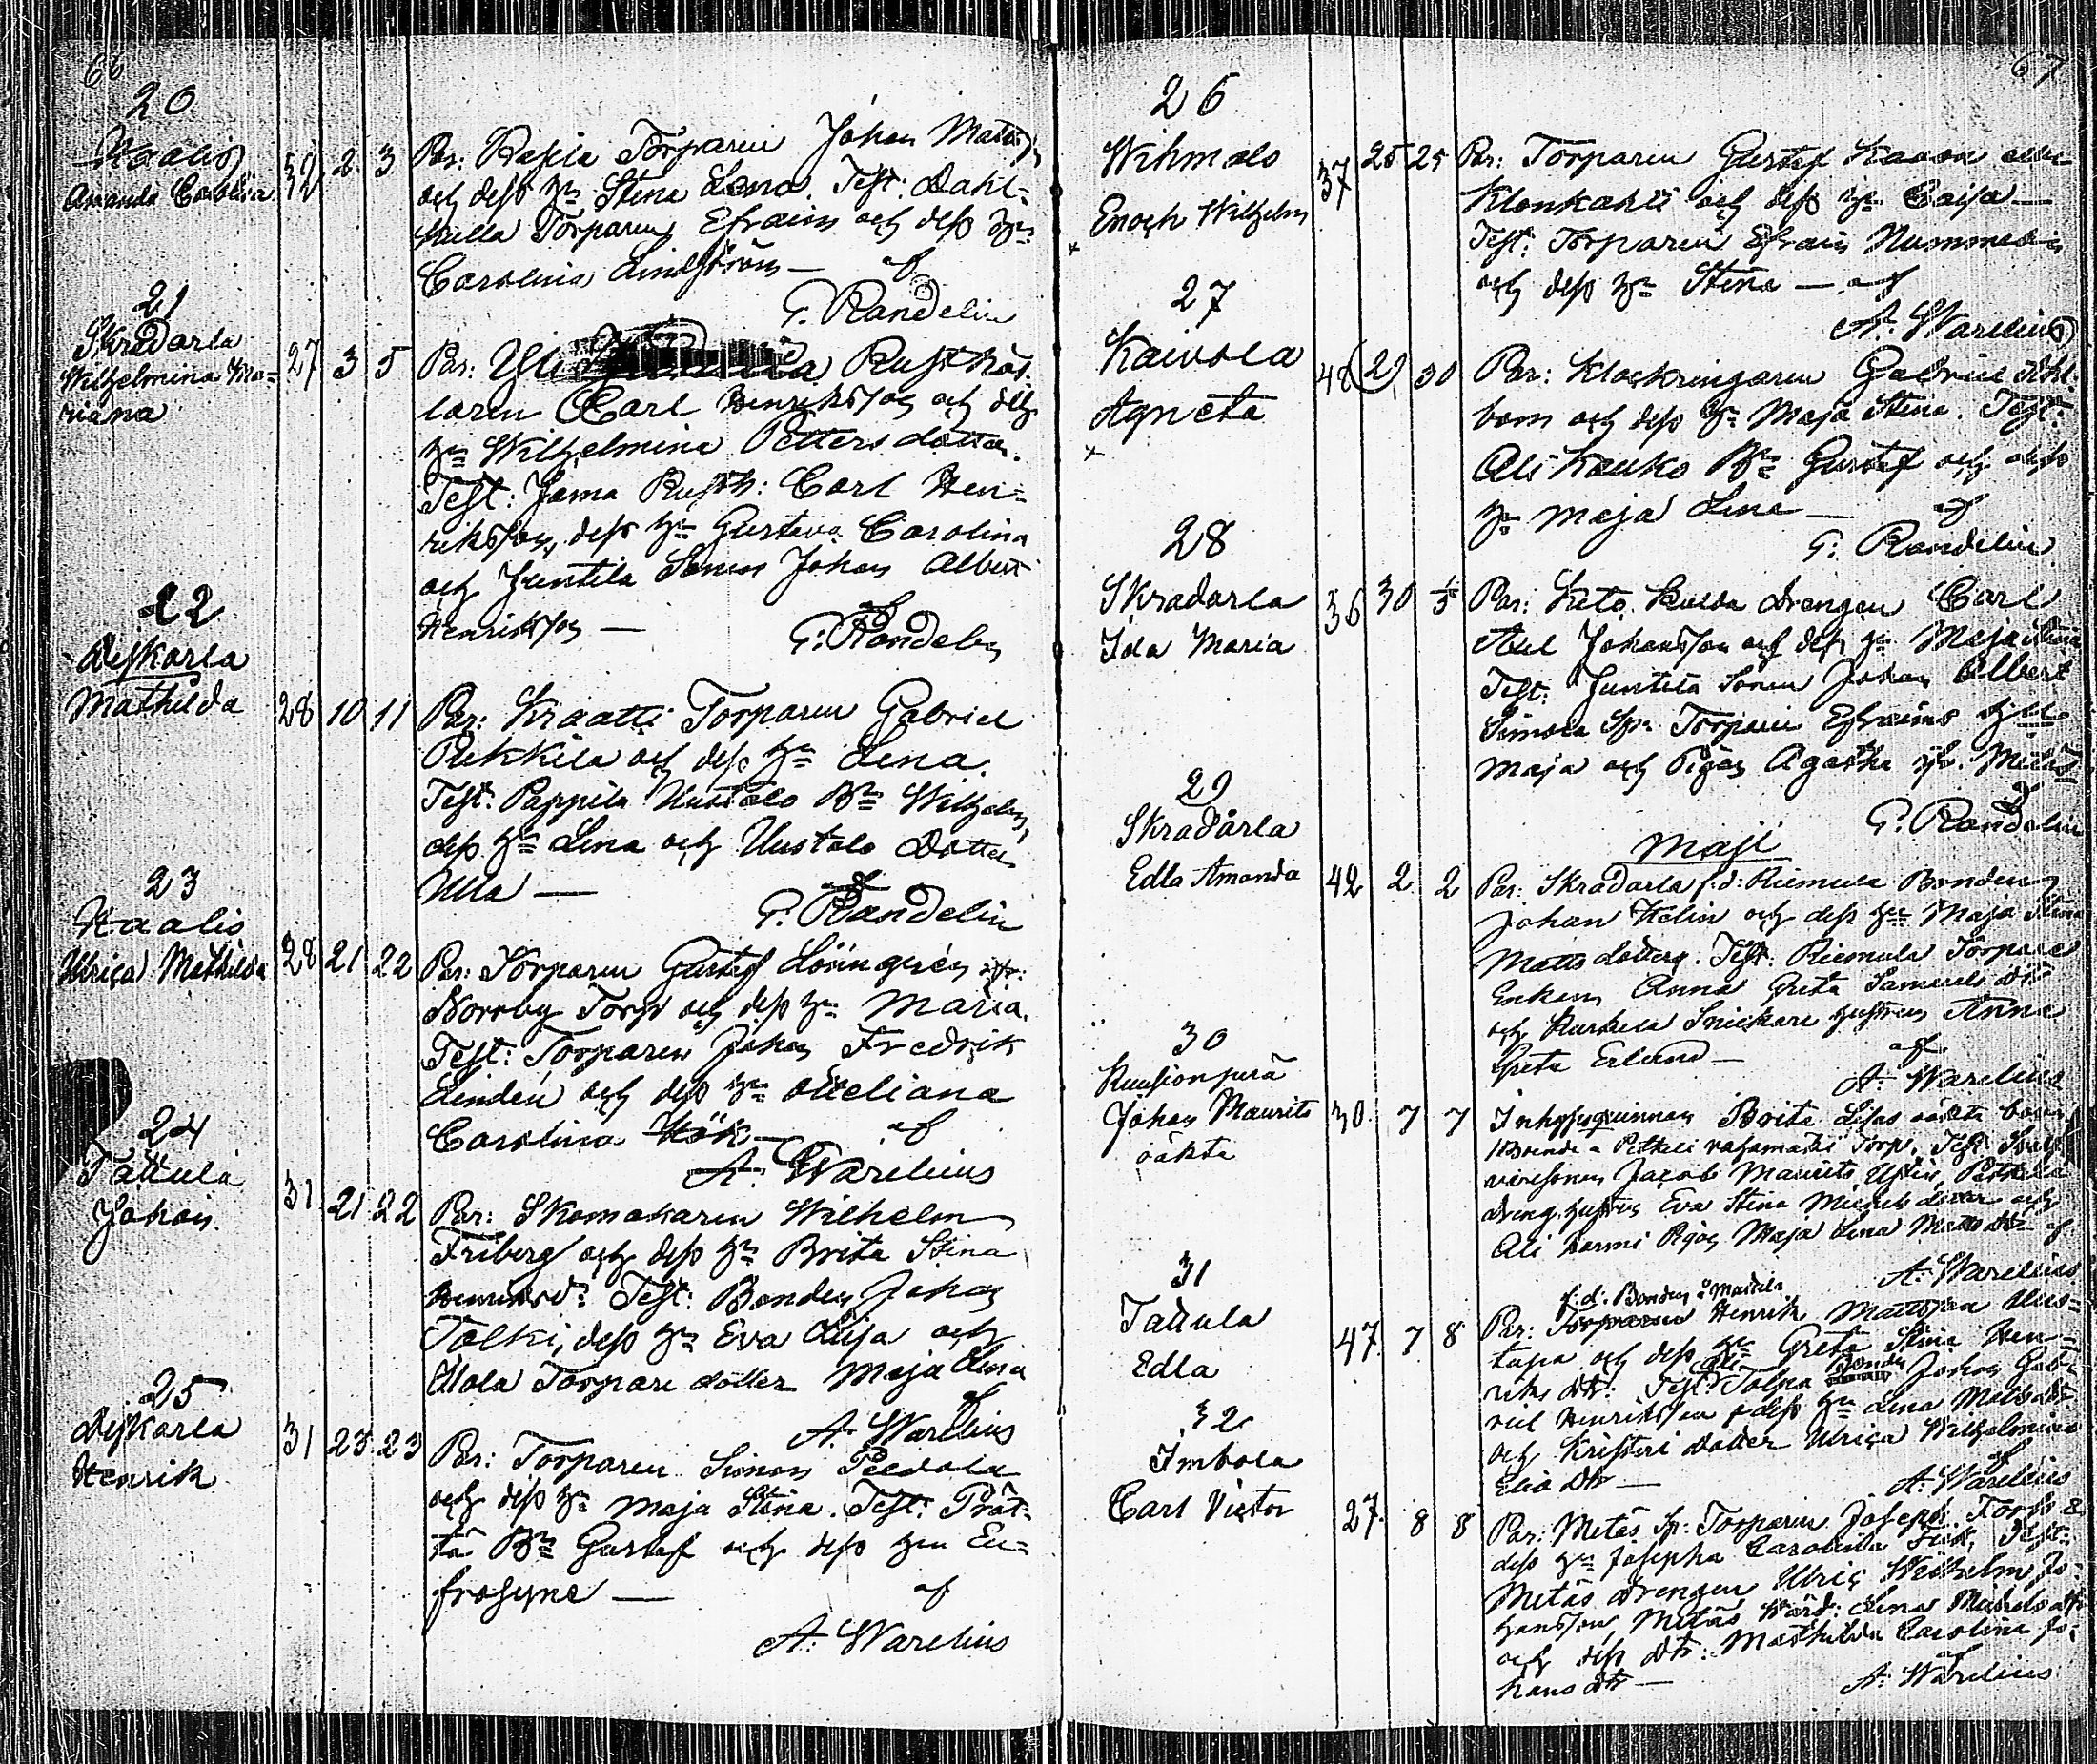 66
20
Kaalis
Amanda Carolina
32 2 3
Par: Torparen Johan Matts
och dess hu Stina Lena. Test: Dahl-
kulla Torparen Efraim och dess hu
Carolina Lindström — af
G. Randelin
21
Skradarla
Wilhelmina Ma-
riana
27 3 5
Par: Yli Rusthål-
laren Carl Henriksson och dess
hu Wilhelmina Pettersdotter.
Test: Jama Rusth: Carl Hen-
riksson, dess hu Gustava Carolina
och Juntila Sonen Johan Albert
Henriksson — af
G: Randelin
22
Distarla
Mathilda
28 10 11
Par: Kraatti Torparen Gabriel
Pukkila och dess hu Lena.
Test: Pappila Uustalo Bn Wilhelm,
dess hu Lena och Uustalo Dotter
Ulla — af
G. Randelin
23
Kaalis
Ulrica Mathilda
28 21 22
Par: Torparen Gustaf Lönngrén
Norrby Torp och dess hu Maria.
Test: Torparen Johan Fredrik
Lindén och dess hu
Carolina Hök — af
A: Warelius
24
Tattula
Johan
31 21 22
Par: Skomakaren Wilhelm
Friberg och dess hu Brita Stina
Test: Bonden Johan
Tolki, dess hu Eva Lisa och
Ulola Torpare dotter Maja Lena
af
A: Warelius
25
Henrik
31 23 23
Par: Torparen Simon
och dess hu Maja Stina. Test: Prät-
tä Bn Gustaf och dess hu Eu-
frosyne — af
A: Warelius
67
26
Wihmalo
Enoch Wilhelm
x
37 25 25
Par: Torparen Gustaf
och dess hu Caisa —
Test: Torparen Efraim Nummelin
och dess hu Stina — af
A. Warelius
27
Kaivola
Agneta
x
48 29 30
Par: Klockringaren Gabriel Ahl-
bom och dess hu Maja Stina. Test:
Ali Kauko Bn Gustaf och dess
hu Maja Lena — af
G: Randelin
28
Skradarla
Ida Maria
36 30 1/5
Par: Drengen Carl
Axel Johansson och dess hu Maja Stina
Test: Juntila Sonen Johan Albert
Simola Sp: Torpare Efraims
Maja och Pigan Agatha
af
G: Randelin
Maji
29
Skradarla
Edla Amanda
42 2 2
Par: Skradarla f.d: Riemula Bonden
Johan Helin och dess hu Maja Stina
Matts dotter. Test: Riemula Torpare
Enkan Anna Greta Samuels dtr
och Kurkela Snickare hustrun Anna
Greta Erlund —
af
A: Warelius
30
Kuusionperä
Johan Maurits
oäkta
30 7 7
Inhysqvinnan Brita Lisas oäkta barn
Torp. Test:
Jacob Maurits
dreng hustrun Eva Stina och
Ali Nurmi Pigan Maja Lena Matts dtr af
A: Warelius
31
Tattula
Edla
47 7 8
f:d: Bonden å Mattila
Par: Torparen Henrik Mattsson
och dess hu Greta Stina Hen-
riks dtr: Test: Ali Tolpa Bonden Johan Gab-
riel Henriksson dess hu Lena Matts dtr
och dotter Ulrica Wilhelmina
Elia dtr — af
A: Warelius
32
Imbola
Carl Victor
27 8 8
Par: Metäs Sp: Torparen Joseph Fors &
dess hu Josepha Carolina Test:
Metäs drengen Ulric Wilhelm Jo-
hansson, Metäs Lena Michels dtr
och dess dtr: Mathilda Carolina Jo-
hans dtr — af
A: Warelius